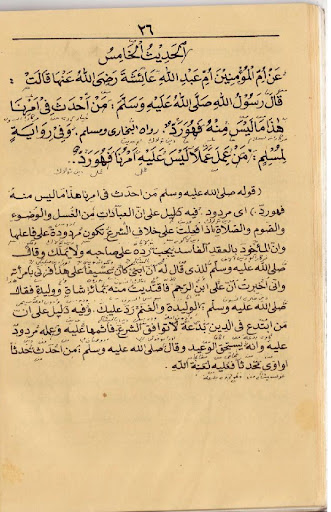 ٢٦
الحَدِيثُ الخَامِسُ
عَنْ أُمِّ المُؤْمِنِيْنَ أُمِّ عَبْدِ اللهِ عَائِشَةَ رَضِىَ اللهُ عَنْهَا قَالَتْ :
قَالَ رَسُولُ اللهِ صَلَّى اللهُ عَلَيْهِ وَسَلَّمَ : مَنْ أَحْدَثَ فِى أَمْرِنَا
هٰذَا مَا لَيْسَ مِنْهُ فَهُوَ رَدٌّ . رواه البخارى ومسلم . وَفِى رِوَايَةٍ
لِمُسْلِمٍ : مَنْ عَمِلَ عَمَلًا لَيْسَ عَلَيْهِ أَمْرُنَا فَهُوَ رَدٌّ .
( قوله صلى الله عليه وسلم من احدث فى امرنا هذا ما ليس منه
فهورد ) اى مردود . فيه دليل على ان العبادات من الغسل والوضوء
والصوم والصلاة اذا فعلت على خلاف الشرع تكون مردودة على فاعلها
وان المأخوذ بالعقد الفاسد يجب رده على صاحبه ولا يملك وقال
صلى الله عليه وسلم للذى قال له ان ابنى كان عسيفا على هذا فزنى بامرأته
وانى اخبرت ان على ابنى الرجم فافتديت منه بمائة شاة ووليدة فقال
صلى الله عليه وسلم : الوليدة والغنم رد عليك . وفيه دليل على ان
من ابتدع فى الدين بدعة لا توافق الشرع فاثمها عليه وعمله مردود
عليه وانه يستحق الوعيد وقال صلى الله عليه وسلم : من احدث حدثا
او اوى محدثا فعليه لعنة الله .